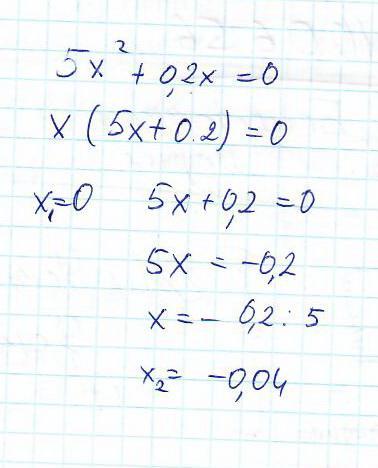 5x² + 0,2x = 0
x (5x + 0.2) = 0
x₁=0 5x + 0,2 = 0
5x = -0,2
x = - 0,2 : 5
x₂ = -0,04